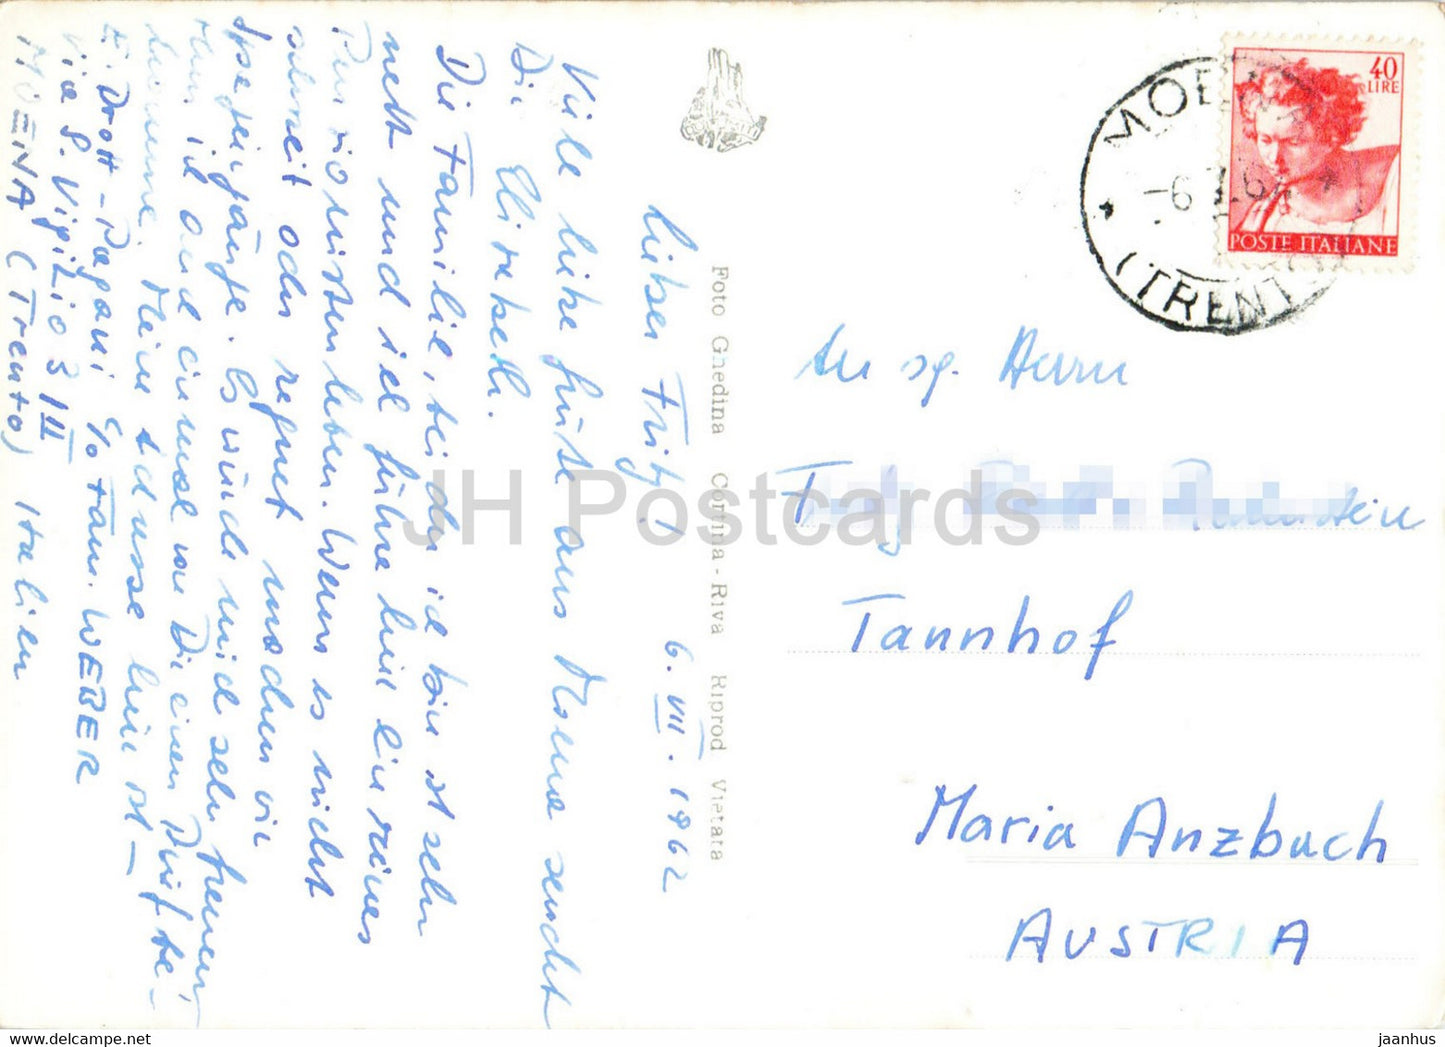 Lieber Fritz! 6. VII. 1962
Viele liebe Grüße aus Moena sendet
Dir Elisabeth.
Die Familie, bei der ich bin ist sehr
nett und ich führe hier ein reines
Pensionistenleben. Wenn es nicht
schneit oder regnet machen wir
Spaziergänge. Es würde mich sehr freuen,
wenn ich auch einmal von Dir einen Brief be-
komme. Meine Adresse hier ist –
E. Drott - Pagani c/o Fam. WEBER
Via S. Vigilio 3 III
MOENA (Trento) Italien
Foto Ghedina Cortina - Riva Riprod Vietata
MOENA
-6.7.62
(TRENTO)
40
LIRE
POSTE ITALIANE
An sg. Herrn
Tannhof
Maria Anzbach
AUSTRIA
JH Postcards
hippostcard.com
jaanhus